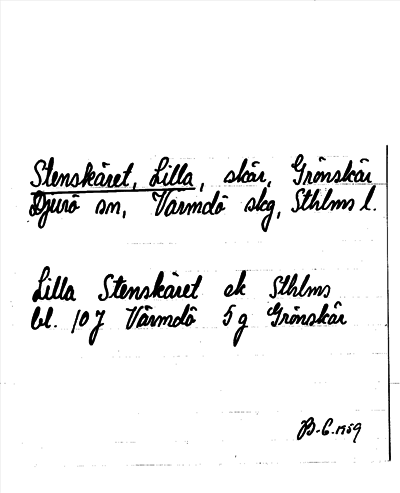 Stenskäret, Lilla, skär, Grönskär
Djurö sn, Värmdö skg, Sthlms l.
Lilla Stenskäret ek Sthlms
bl. 10J Värmdö 5g Grönskär
B-C.1959